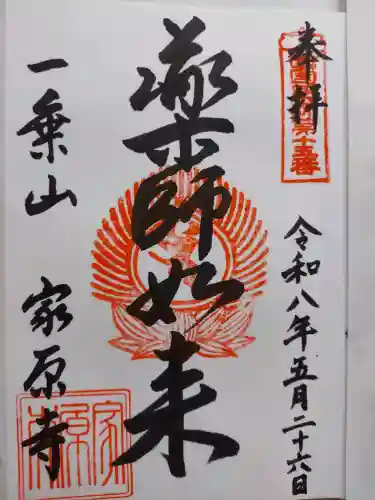 奉拝
令和八年五月二十六日
薬師如来
一乗山 家原寺